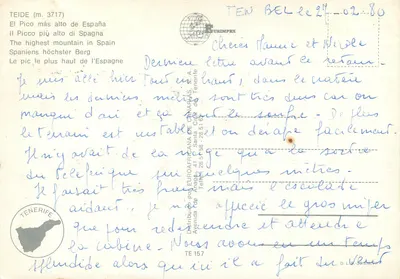 TEIDE (m. 3717)
El Pico más alto de España
Il Picco più alto di Spagna
The highest mountain in Spain
Spaniens höchster Berg
Le pic le plus haut de l'Espagne
TEN BEL le 27-02-80
et Nicole
Dernière lettre avant le retour.
Je suis allé hier tout en haut, dans le
mais les derniers mètres sont très durs car on
manque d'air et ça le souffle. De plus
le terrain est instable et on dérape facilement.
Il n'y avait de la neige qu'à la sortie
du téléphérique sur quelques mètres.
Il faisait très frais mais l'escalade
aidant, je n'ai apprécié le gros
que pour redescendre et attendre
la cabine. Nous avons eu un temps
splendide alors qu'ici il a fait du vent
TENERIFE
TE 157